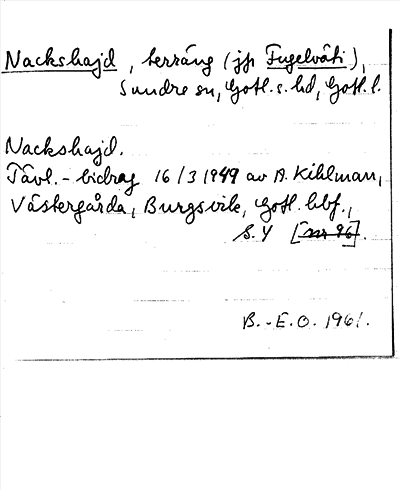 Nackshajd, terräng (jfr Fugelväti),
Sundre sn, Gotl. s. hd, Gotl. l.
Nackshajd.
Tävl.-bidrag 16/3 1949 av A. Kihlman,
Västergårda, Burgsvik, Gotl. hbf.,
S. 4 [nr 96].
B.-E.O. 1961.